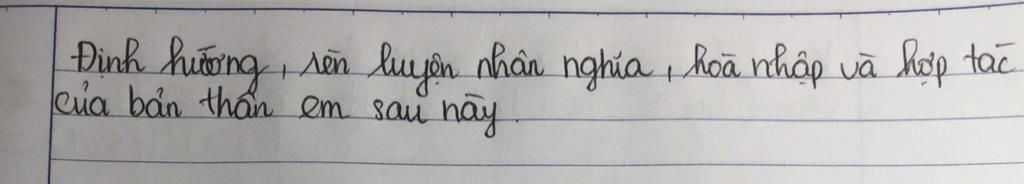 Định hướng, rèn luyện nhân nghĩa, hoà nhập và hợp tác
của bản thân em sau này.